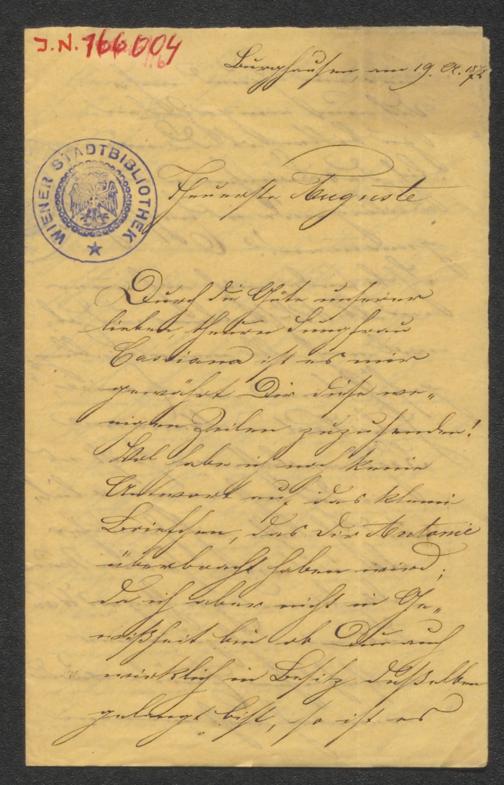 J.N. 166004
Burghausen, am 19. 
WIENER STADTBIBLIOTHEK
Theuerste Auguste
Durch die Güte unserer
lieben, theuren Jungfrau
Cassiana ist es mir
gewährt Dir diese we-
nigen Zeilen zuzusenden!
Wol habe ich noch keine
Antwort auf das kleine
Briefchen, das dir Antonie
überbracht haben wird;
da ich aber nicht in Ge-
wißheit bin ob Du auch
wirklich in Besitz desselben
gelangt bist, so ist es